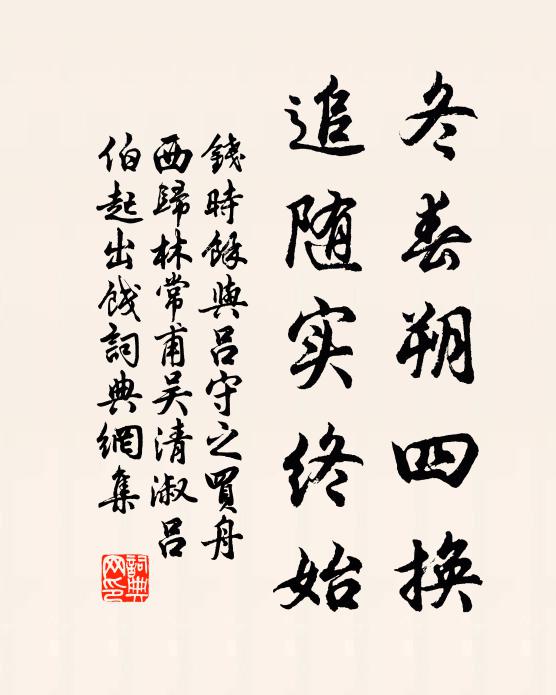 冬春朔四换
追随实终始
錢時餘與呂守之買舟
西歸林常甫吴清淑呂
伯起出餞詞典網集
詞典网印